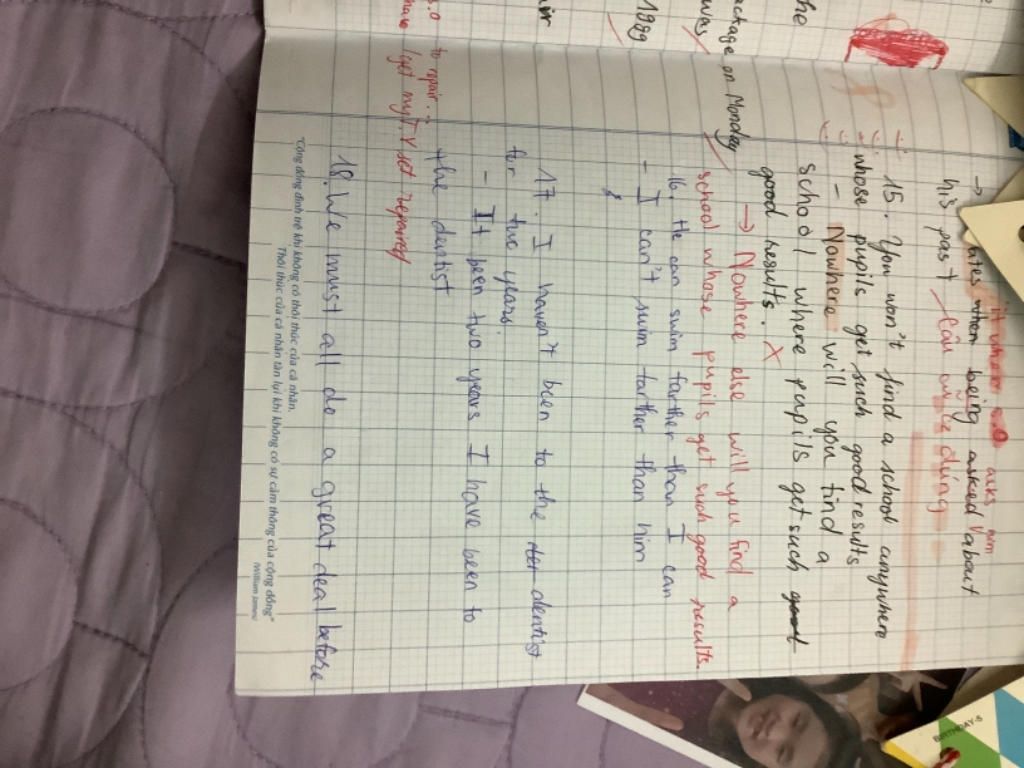 → hates when being asked about
asks him
his past
Câu cũ là đúng
15. You won't find a school anywhere
whose pupils get such good results
- Nowhere will you find a
school where pupils get such
good results. X
→ Nowhere else will you find a
school whose pupils get such good results.
16. He can swim farther than I can
- I can't swim farther than him
17. I haven't been to the dentist
for two years.
- It been two years I have been to
the dentist
18. We must all do a great deal before
"Cộng đồng đình trệ khi không có thôi thúc của cá nhân.
Thôi thúc của cá nhân tàn lụi khi không có sự cảm thông của cộng đồng"
(William James)
the
package on Monday
was
1999
to repair.
have/get my T.V set repaired
BIRTHDAY-S